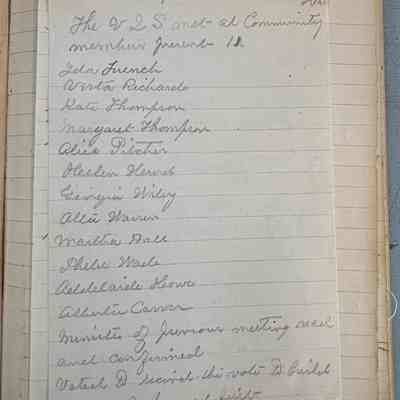 The V I S met at Community
members present 12
Ida French
Vesta Richards
Kate Thompson
Margaret Thompson
Alice Pitcher
Helen
Georgia Wiley
Allie Warren
Martha Hall
Phebe Wade
Addelaide Howe
Alberta Carver
Minutes of previous meeting read
and confirmed
Voted to recind the vote to build